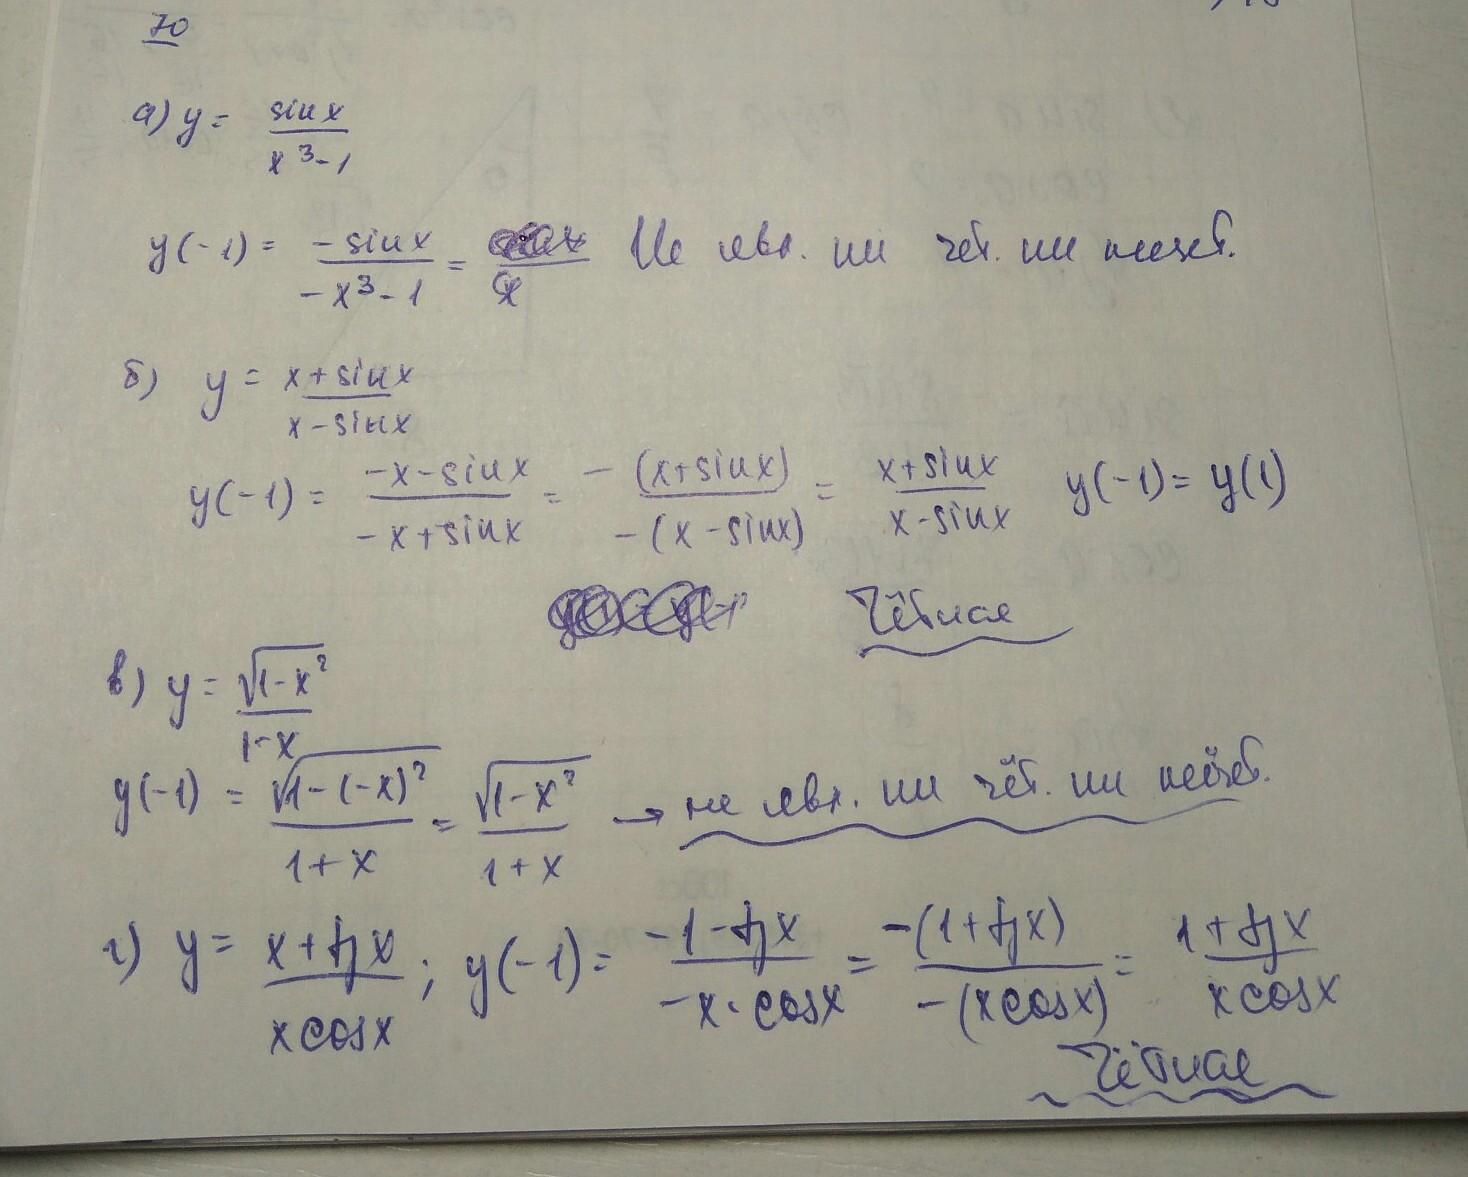 70
а) y = sin x / x³-1
y(-1) = -sin x / -x³-1 = Не явл. ни чёт. ни нечёт.
б) y = x+sin x / x-sin x
y(-1) = -x-sin x / -x+sin x = -(x+sin x) / -(x-sin x) = x+sin x / x-sin x y(-1) = y(1)
Чётная
в) y = √1-x² / 1-x
y(-1) = √1-(-x)² / 1+x = √1-x² / 1+x → не явл. ни чёт. ни нечёт.
г) y = x+tg x / x cos x ; y(-1) = -1-tg x / -x·cos x = -(1+tg x) / -(x cos x) = 1+tg x / x cos x
Чётная